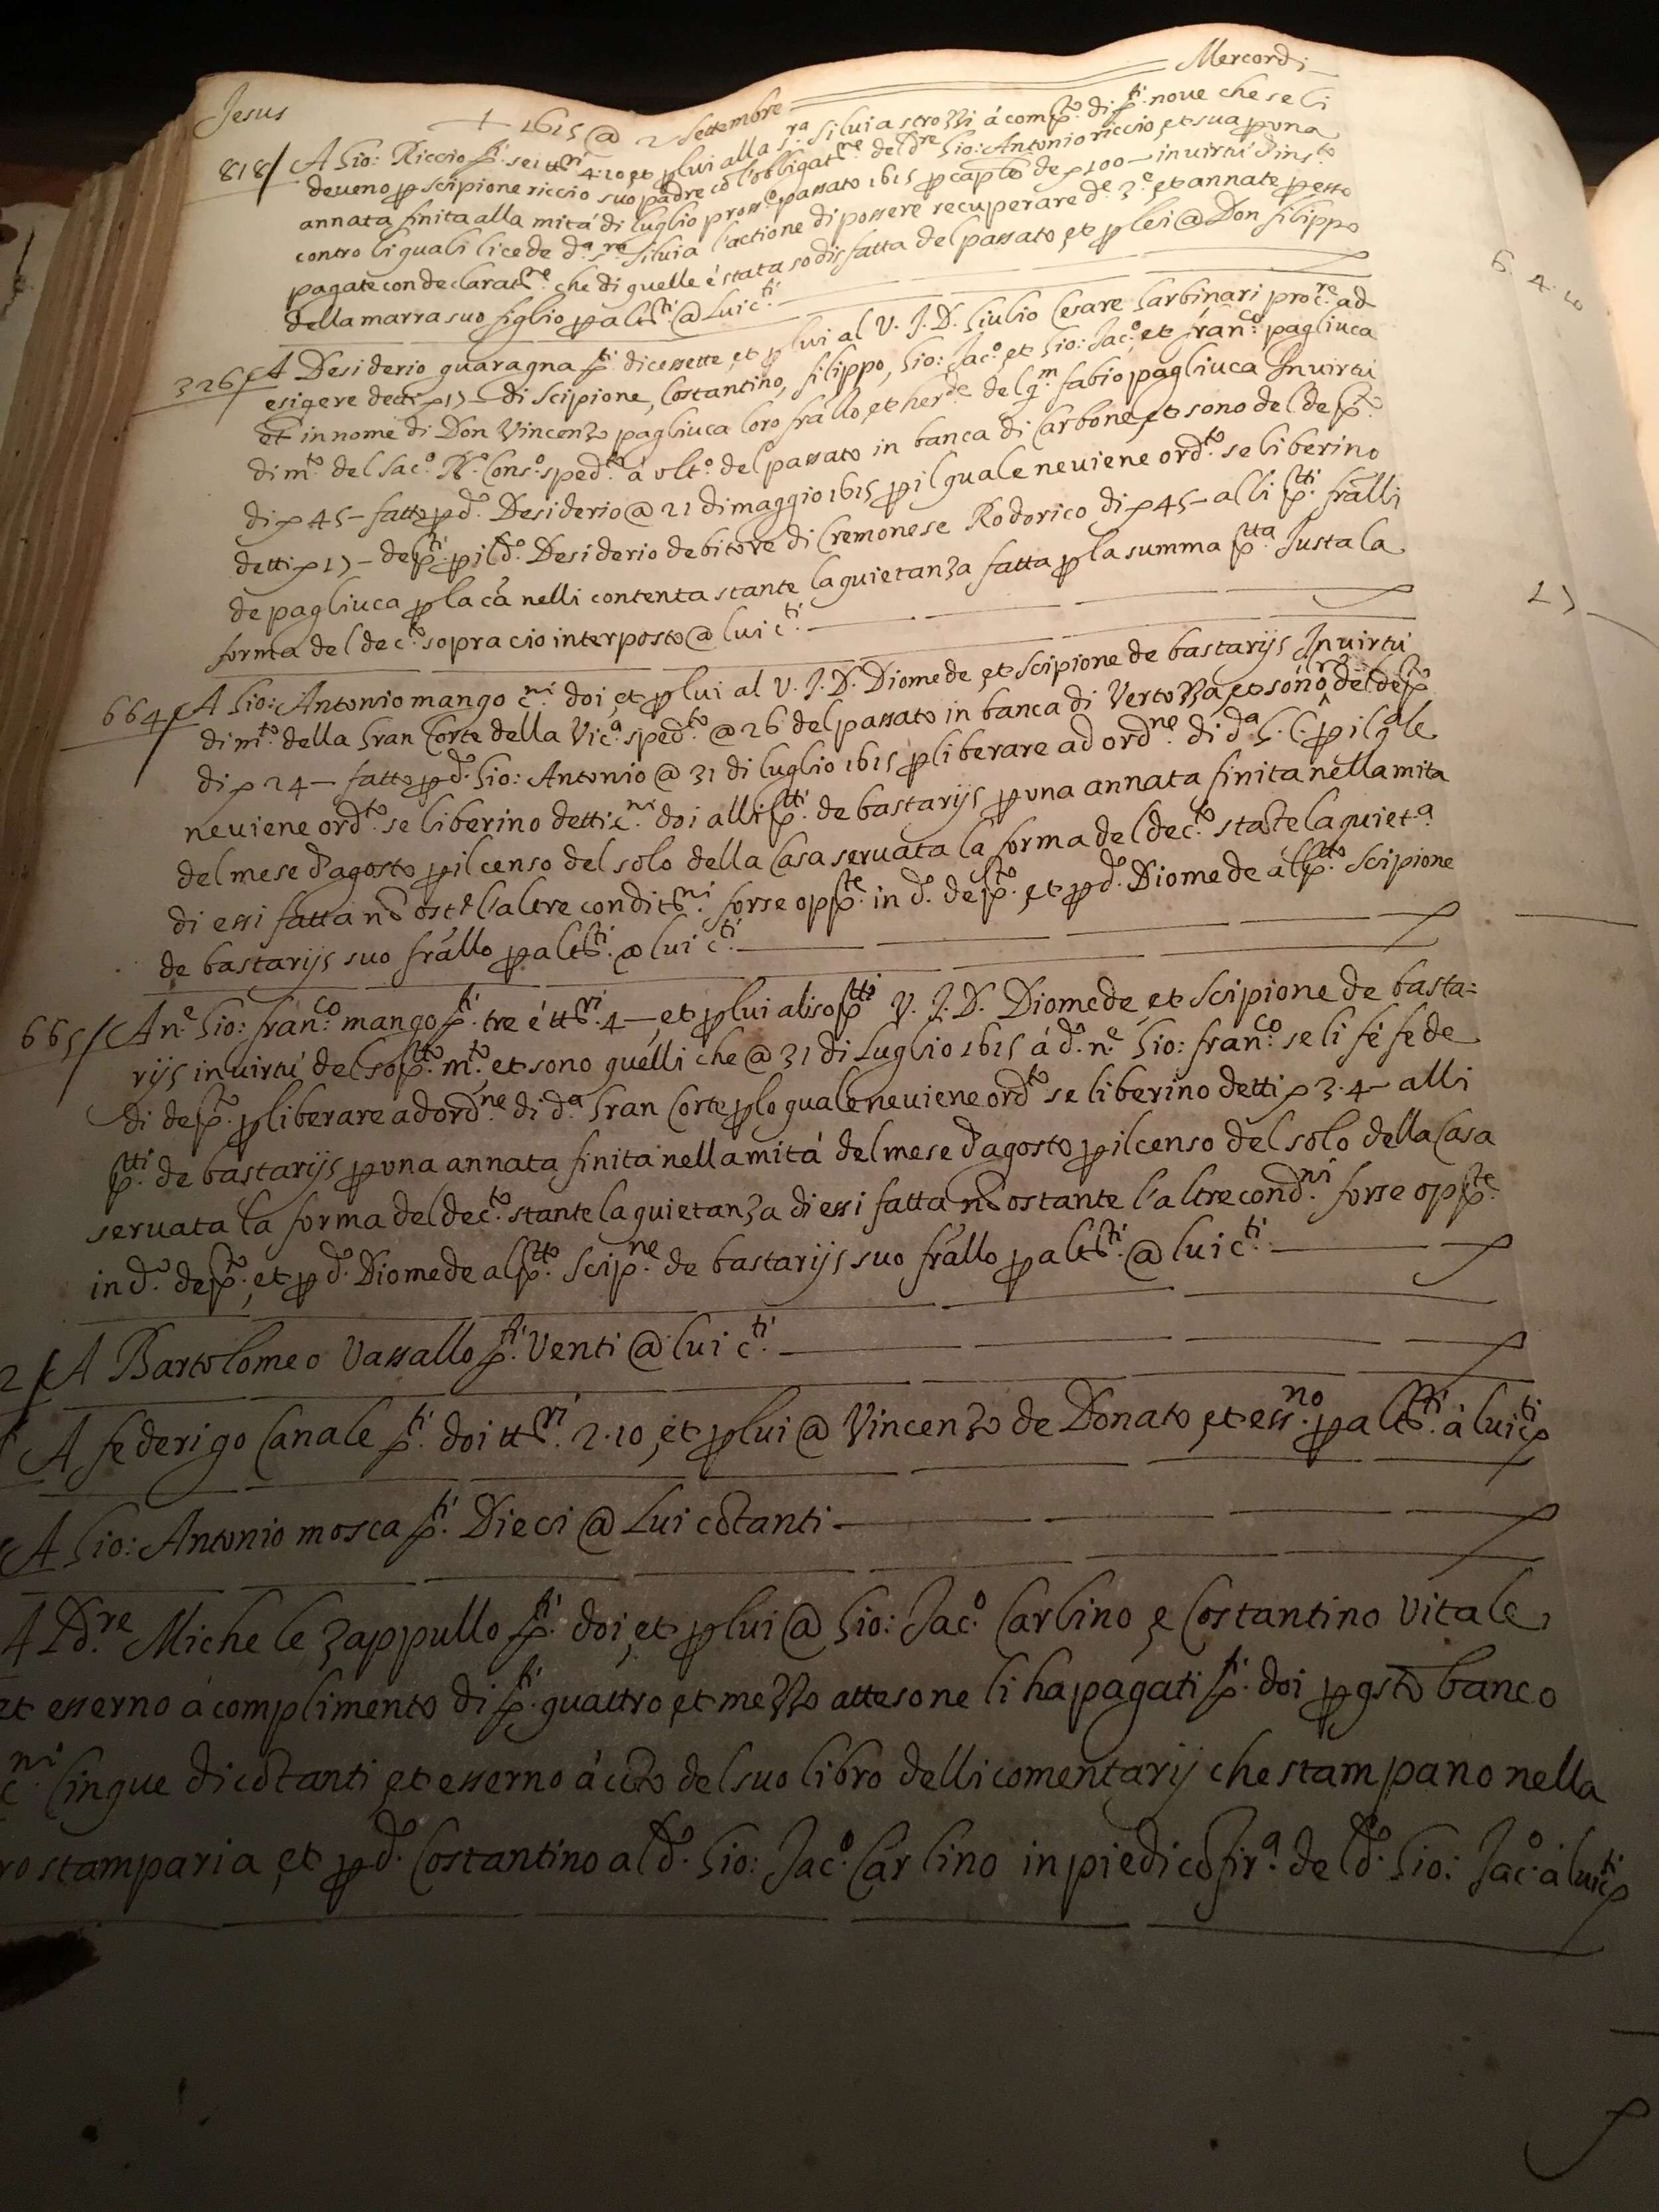 Jesus + 1615 @ 2 Settembre Mercordi
818/ A Gio: Riccio d.ti sei tt.ri 4.10 et p lui alla s.ra Silvia strozzi á comp.to di d.ti nove che se li
deveno p scipione riccio suo padre có l'obligat.ne del d.re Gio: Antonio riccio, et sua p una
annata finita alla mitá di luglio pross.o passato 1615 p cap.to de d 100 — in virtú d'ins.to
contro li quali li cede d.a s.ra Silvia l'actione di possere recuperare d.e 3.e et annate p esso
pagate con declarat.ne che di quelle é stata sodisfatta del passato, et p lei @ Don filippo
della marra suo figlio p alt.ti @ Lui c.ti
326/ A Desiderio guaragna d.ti dicessette, et p lui al V. J. D. Giulio Cesare Garbinari proc.re ad
esigere detti d 17 — di Scipione, Costantino, filippo, Gio: Jac.o, et Gio: Jac.o, et fran.co pagliuca
et in nome di Don Vincenzo pagliuca loro frállo, et her.de del q.m fabio pagliuca In virtú
di m.to del Sac.o R.o Cons.o sped.to á ult.o del passato in banca di Carbone, et sono del dep.to
di d 45 — fatto p d.o Desiderio @ 21 di maggio 1615 p il quale ne viene ord.to se liberino
detti d 17 — dep.ti p il d.o Desiderio debitore di Cremonese Rodorico di d 45 — alli p.tti frálli
de pagliuca p la cá nelli contenta stante la quietanza fatta p la summa p.tta Justa la
forma del dec.to sopra cio interposto @ lui c.ti
664/ A Gio: Antonio mango c.ni doi, et p lui al V. J. D. Diomede et Scipione de bastarijs In virtú
di m.to della Gran Corte della Vic.a sped.to @ 26 del passato in banca di Vertozza, et sóno del dep.to
di d 24 — fatto p d.o Gio: Antonio @ 31 di luglio 1615 p liberare ad ord.ne di d.a G. C. p il q.le
ne viene ord.to se liberino detti c.ni doi alli p.tti de bastarijs p una annata finita nella mita
del mese d'agosto p il censo del solo della Casa servata la forma del dec.to state la quiet.a
di essi fatta nó ost.e l'altre condit.ni forse opp.te in d.o dep.to et p d.o Diomede al p.tto Scipione
de bastarijs suo frállo p alt.ti @ lui c.ti
665/ A n.e Gio: fran.co mango d.ti tre é tt.ri 4 — et p lui ali sop.tti V. J. D. Diomede, et Scipione de basta=
rijs in virtú del sop.tto m.to et sono quelli che @ 31 di Luglio 1615 á d.o n.e Gio: fran.co se li fé fede
di dep.to p liberare ad ord.ne di d.a Gran Corte p lo quale ne viene ord.to se liberino detti d 3.4 — alli
p.tti de bastarijs p una annata finita nella mitá del mese d'agosto p il censo del solo della Casa
servata la forma del dec.to stante la quietanza di essi fatta nó ostante l'altre cond.ni forse opp.te
in d.o dep.to, et p d.o Diomede al p.tto Scip.ne de bastarijs suo frállo p alt.ti @ lui c.ti
2/ A Bartolomeo Vassallo d.ti Venti @ lui c.ti
A federigo Canale d.ti doi tt.ri 2.10, et p lui @ Vincenzo de Donato, et ess.no p alt.ti á lui c.ti
A Gio: Antonio mosca d.ti Dieci @ Lui cótanti
A D.re Michele Zappullo d.ti doi, et p lui @ Gio: Jac.o Carlino, e Costantino Vitale,
et esserno á complimento di d.ti quattro, et mezzo atteso ne li ha pagati d.ti doi p qsto banco
c.ni Cinque di cótanti, et esserno á cto del suo libro delli comentarij che stampano nella
ro stamparia, et p d.o Costantino al d.o Gio: Jac.o Carlino in piedi có fir.a del d.o Gio: Jac.o á lui c.ti
6.4.10
17